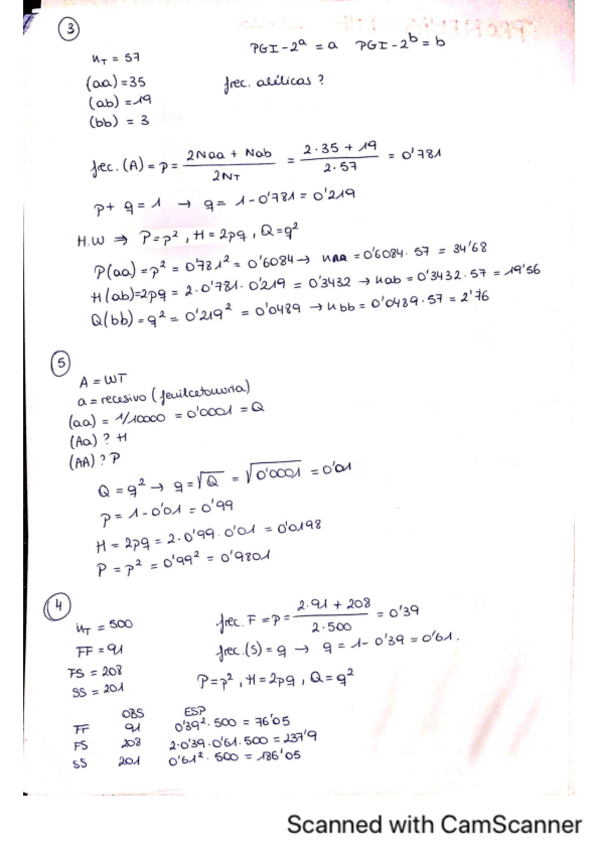 ③
PGI-2ᵃ = a PGI-2ᵇ = b
n_T = 57
(aa) = 35 frec. alélicas ?
(ab) = 19
(bb) = 3
frec. (A) = p = (2Naa + Nab) / 2N_T = (2·35 + 19) / 2·57 = 0'781
p + q = 1 → q = 1 - 0'781 = 0'219
H.W ⇒ P = p², H = 2pq, Q = q²
P(aa) = p² = 0'781² = 0'6084 → naa = 0'6084 · 57 = 34'68
H(ab) = 2pq = 2·0'781·0'219 = 0'3432 → nab = 0'3432·57 = 19'56
Q(bb) = q² = 0'219² = 0'0489 → nbb = 0'0489·57 = 2'76
⑤
A = WT
a = recesivo (fenilcetonuria)
(aa) = 1/10000 = 0'0001 = Q
(Aa) ? H
(AA) ? P
Q = q² → q = √Q = √0'0001 = 0'01
p = 1 - 0'01 = 0'99
H = 2pq = 2·0'99·0'01 = 0'0198
P = p² = 0'99² = 0'9801
④
n_T = 500 frec. F = p = (2·91 + 208) / 2·500 = 0'39
FF = 91 frec. (S) = q → q = 1 - 0'39 = 0'61.
FS = 208
SS = 201 P = p², H = 2pq, Q = q²
OBS ESP
FF 91 0'39² · 500 = 76'05
FS 208 2·0'39·0'61·500 = 237'9
SS 201 0'61² · 500 = 186'05
Scanned with CamScanner